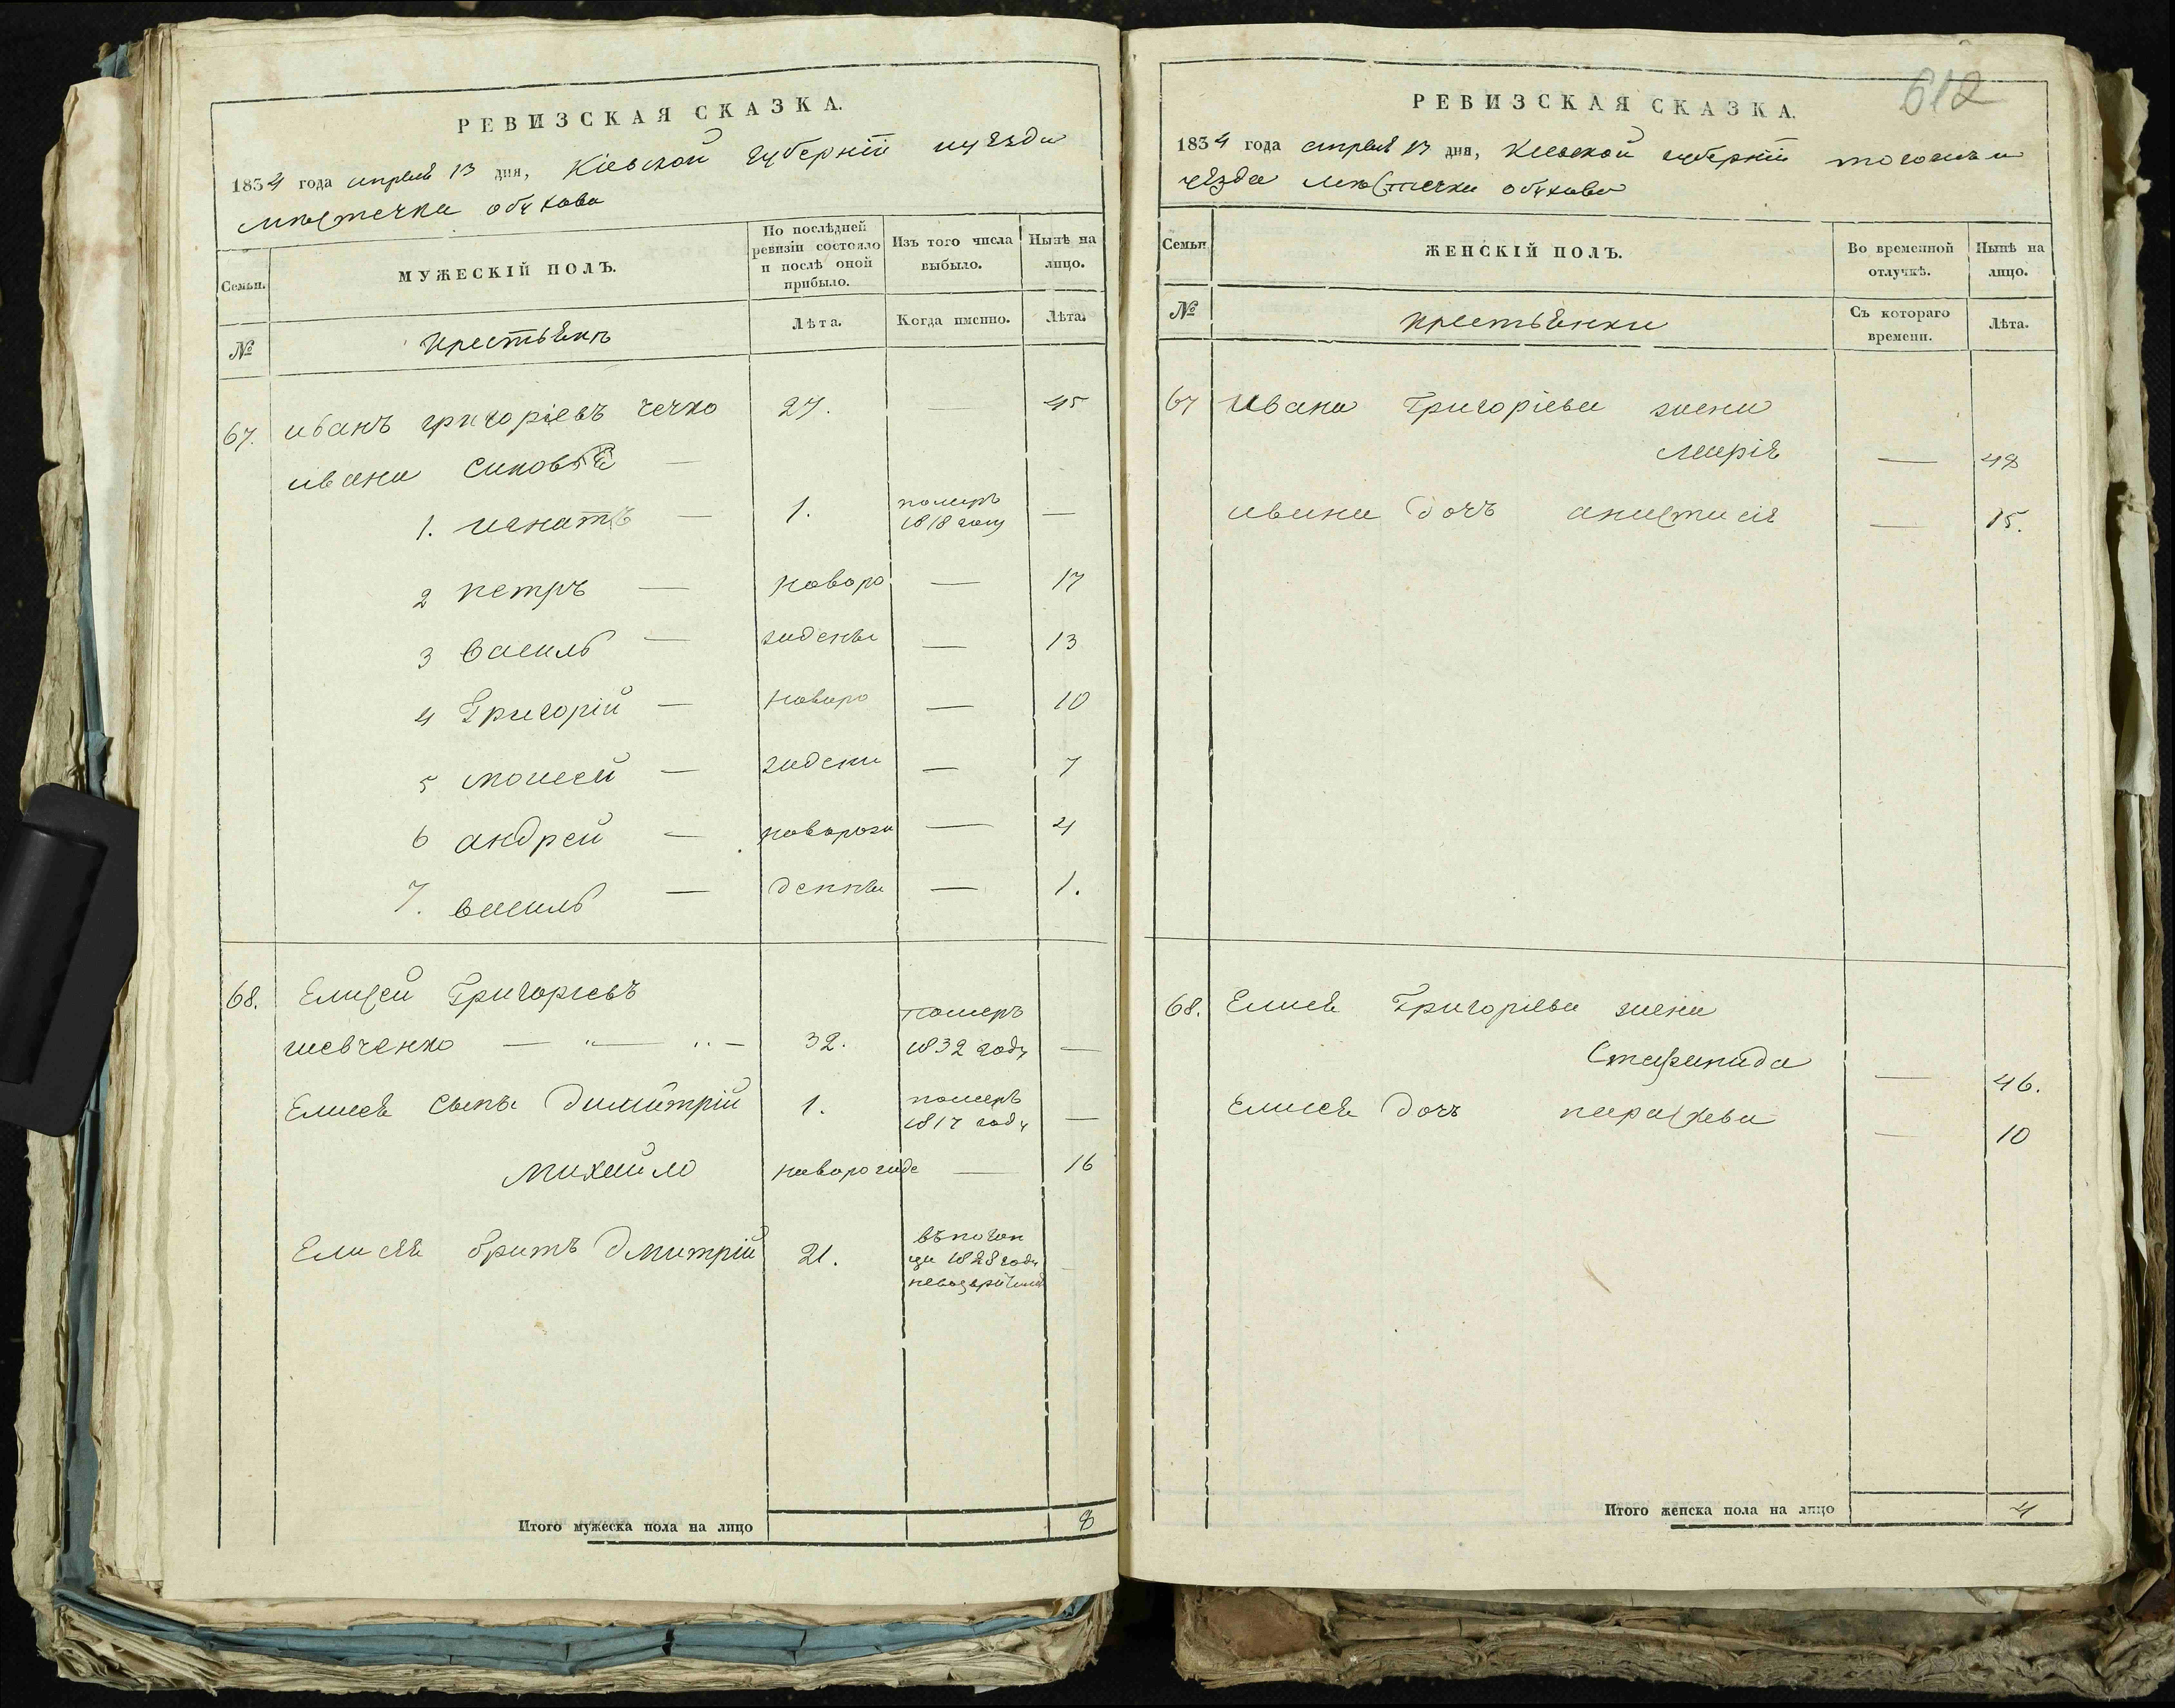 РЕВИЗСКАЯ СКАЗКА.
1834 года апреля 13 дня, Кіевской губерніи иуезда
мѣстечка обухова
Семьи.
МУЖЕСКІЙ ПОЛЪ.
По послѣдней ревизіи состояло и послѣ оной прибыло.
Изъ того числа выбыло.
Нынѣ на лицо.
№
крестьянъ
Лѣта.
Когда именно.
Лѣта.
67. иванъ григоріевъ чечко 27. — 45
ивана синовья —
1. игнатъ — 1. померъ 1818 году —
2 петръ — новоро — 17
3 василь — жденъ — 13
4 Григорій — новоро — 10
5 моисей — ждени — 7
6 андрей — новорож — 4
7. василь — денны — 1.
68. Елисей Григорьевъ
шевченко — 32. померъ 1832 году —
Елисея сынъ димитрій 1. померъ 1817 году —
михайло новорожде — 16
Елисея братъ Дмитрій 21. 1828 году
Итого мужеска пола на лицо 8
612
РЕВИЗСКАЯ СКАЗКА.
1834 года апреля 13 дня, Кіевской губерніи тогожъ и
уезда мѣстечка обухова
Семьи
ЖЕНСКІЙ ПОЛЪ.
Во временной отлучкѣ.
Нынѣ на лицо.
№
крестьянки
Съ котораго времени.
Лѣта.
67 Ивана Григоріева жена
марія — 48
ивана дочъ анастасія — 15.
68. Елисея Григоріева жена
Стефанида — 46.
Елисея дочъ параскева — 10
Итого женска пола на лицо 4